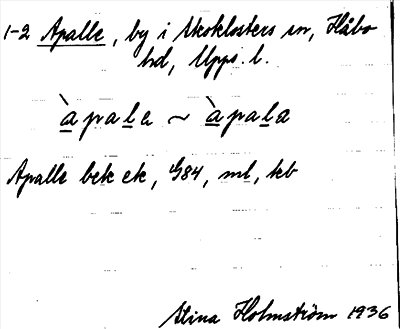 1-2 Apalle, by i Skoklosters sn, Håbo
hd, Upps. l.
àpala ~ àpala
Apalle bek ek, G84, ml, kb
Stina Holmström 1936